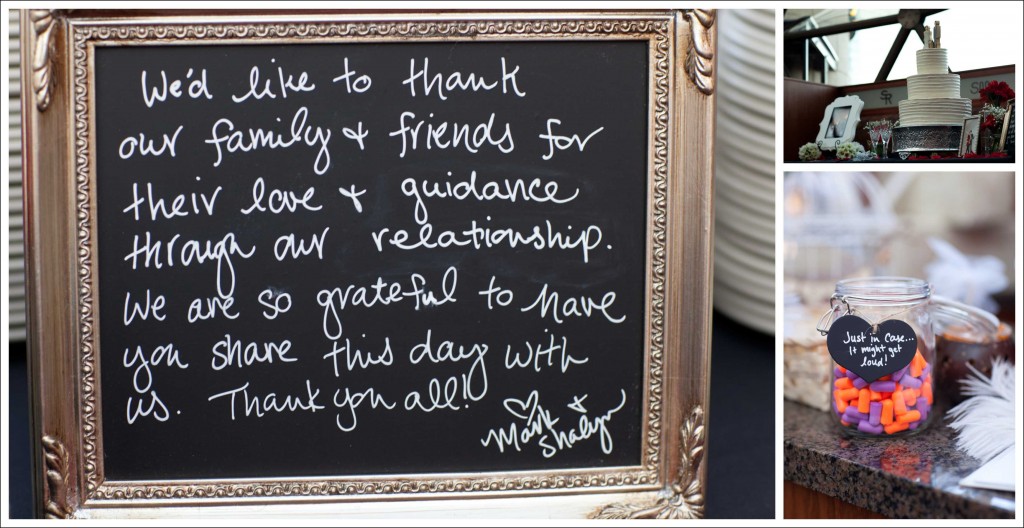 We'd like to thank
our family & friends for
their love & guidance
through our relationship.
We are so grateful to have
you share this day with
us. Thank you all!
♡ Mark &
Shalyn
SR
Just in case...
It might get
loud!